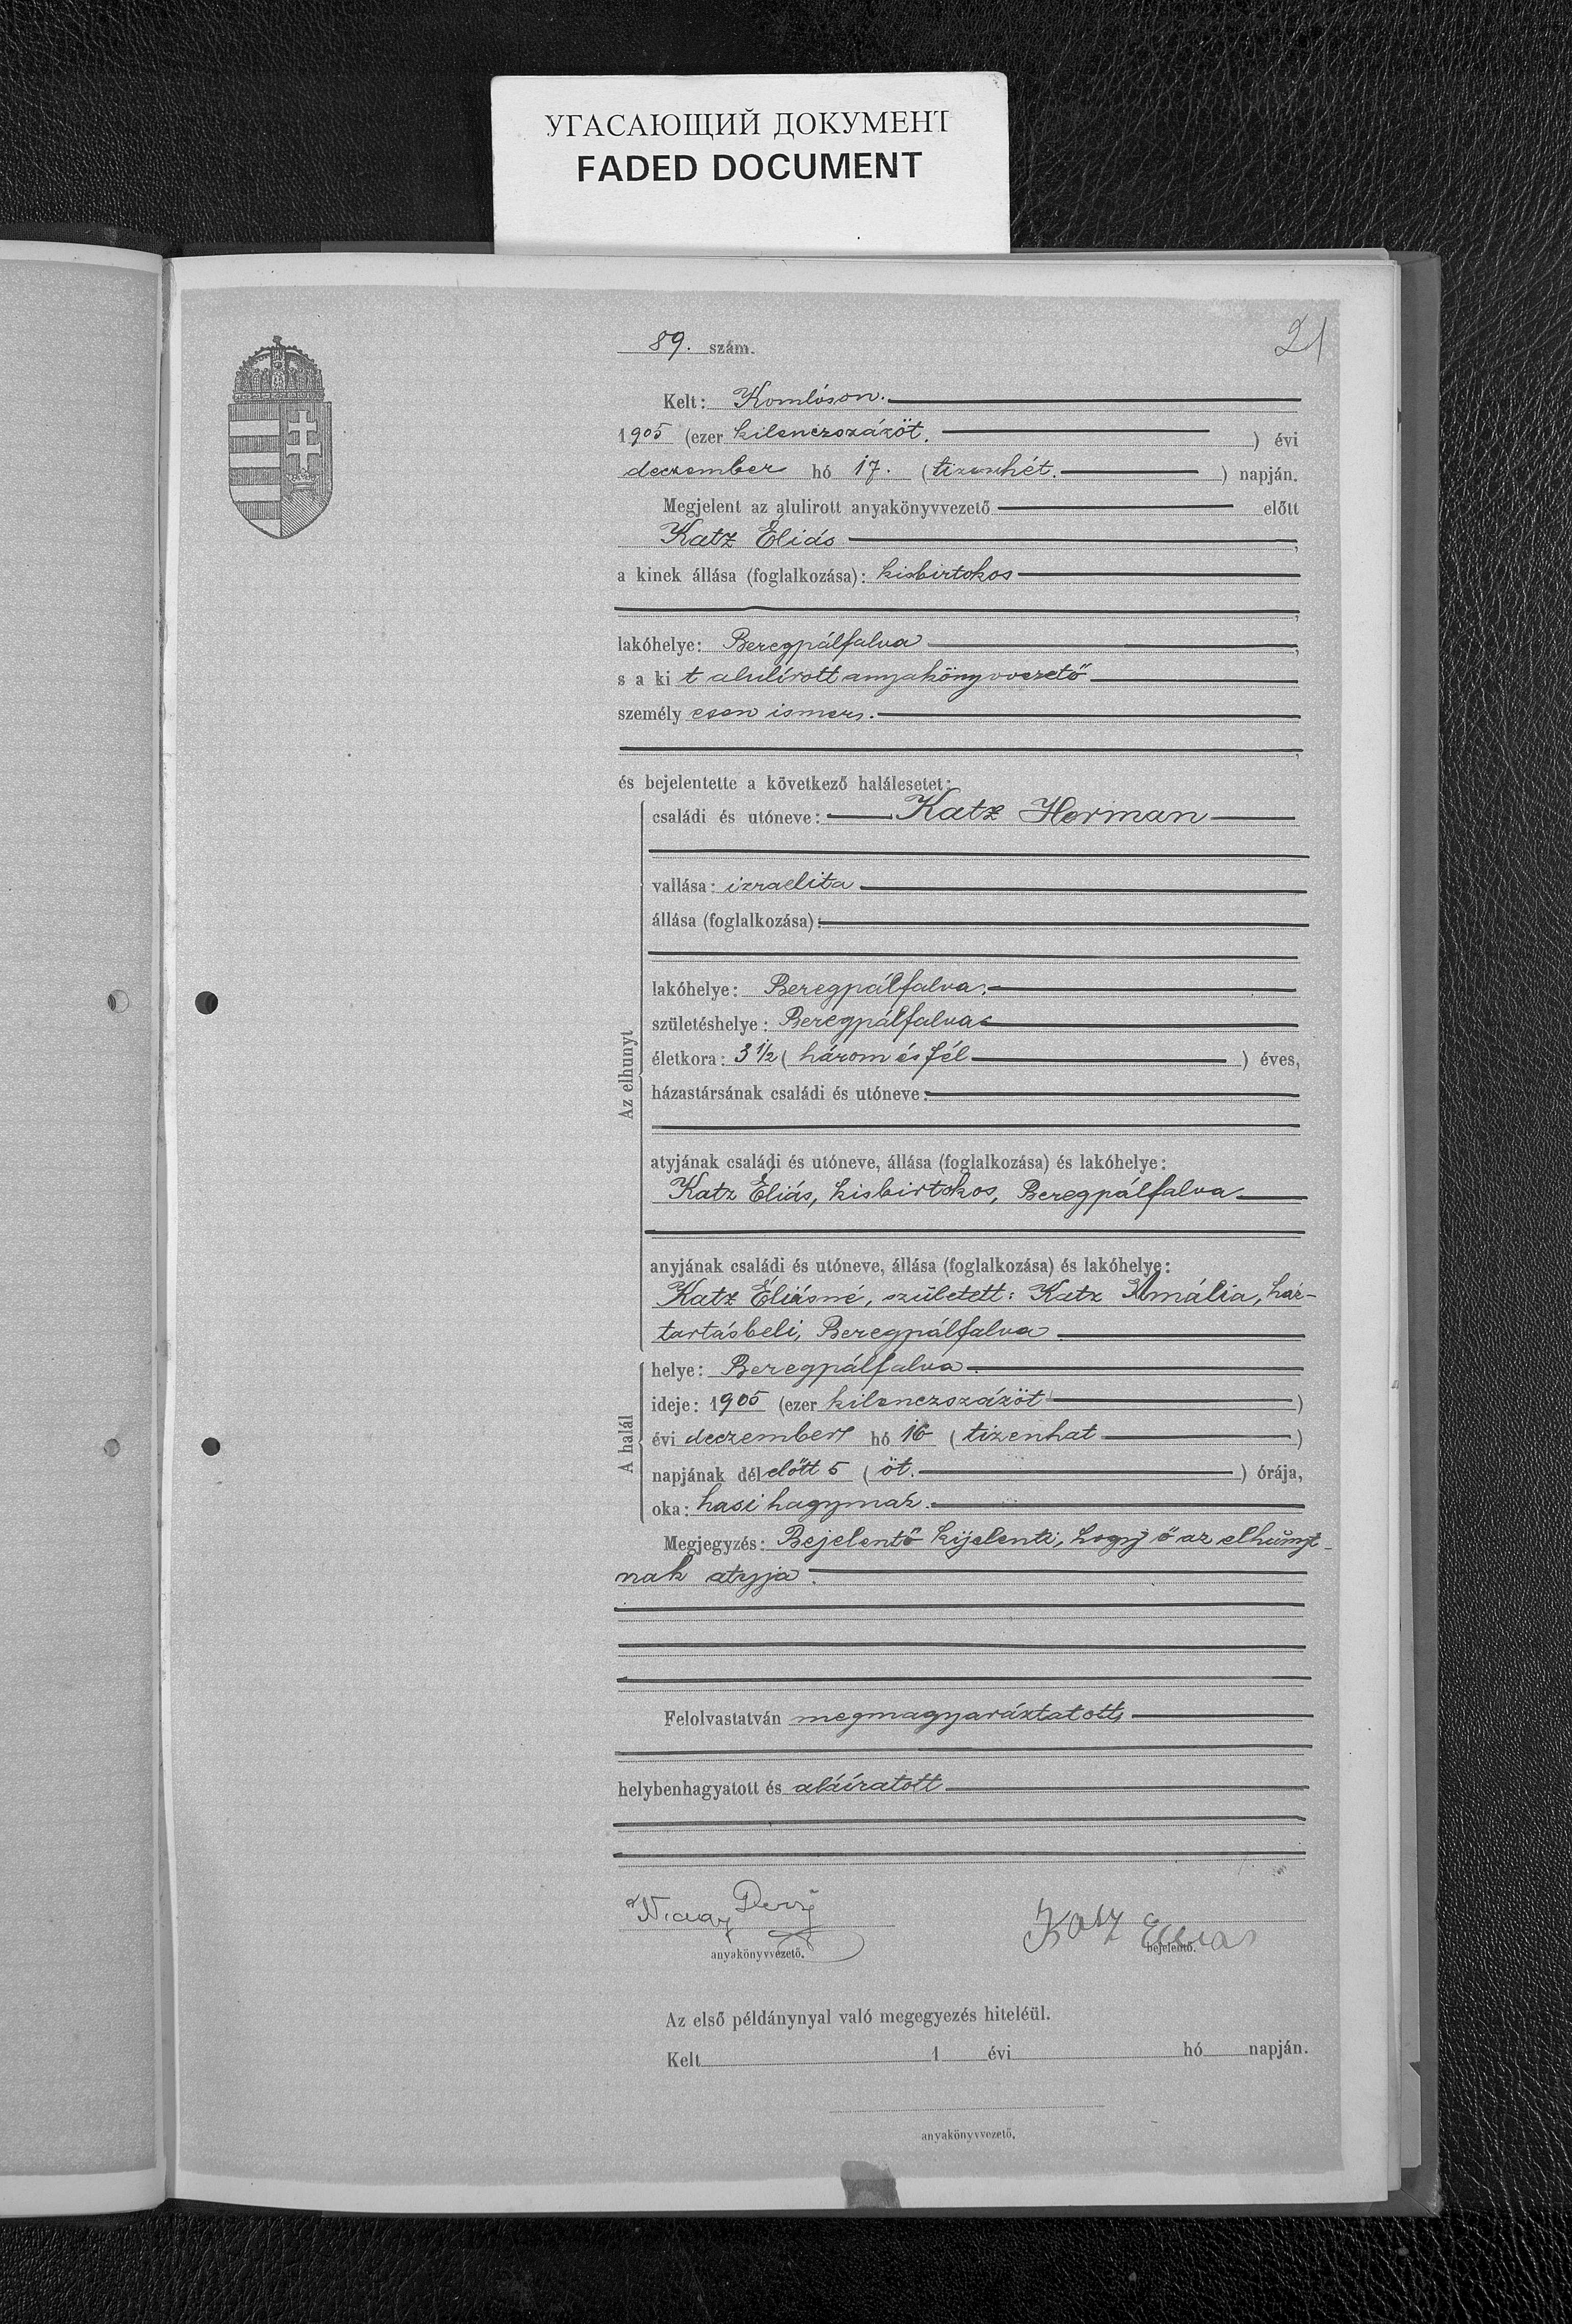 УГАСАЮЩИЙ ДОКУМЕНТ
FADED DOCUMENT
21
89. szám.
Kelt: Komlóson.
1905 (ezer kilenczszázöt.) évi
deczember hó 17. (tizenhét.) napján.
Megjelent az alulirott anyakönyvvezető előtt
Katz Éliás,
a kinek állása (foglalkozása): kisbirtokos
,
lakóhelye: Beregpálfalva,
s a kit alulírott anyakönyvvezető
személyesen ismer.
,
és bejelentette a következő halálesetet:
Az elhunyt
családi és utóneve: Katz Herman
vallása: izraelita
állása (foglalkozása):
lakóhelye: Beregpálfalva,
születéshelye: Beregpálfalva
életkora: 3 1/2 (három és fél) éves,
házastársának családi és utóneve:
atyjának családi és utóneve, állása (foglalkozása) és lakóhelye:
Katz Éliás, kisbirtokos, Beregpálfalva
anyjának családi és utóneve, állása (foglalkozása) és lakóhelye:
Katz Éliásné, született: Katz Amália, ház-
tartásbeli, Beregpálfalva
A halál
helye: Beregpálfalva
ideje: 1905 (ezer kilenczszázöt)
évi deczember hó 16 (tizenhat)
napjának délelőtt 5 (öt.) órája,
oka: hasi hagymaz.
Megjegyzés: Bejelentő kijelenti, hogy ő az elhúnyt-
nak atyja.
Felolvastatván megmagyaráztatott,
helybenhagyatott és aláíratott
anyakönyvvezető.
Katz Elias
bejelentő.
Az első példánynyal való megegyezés hiteléül.
Kelt 1 évi hó napján.
anyakönyvvezető.